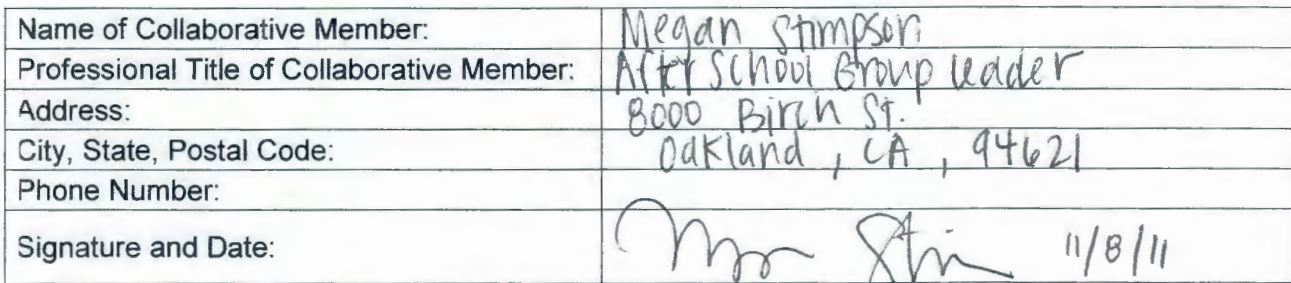 Name of Collaborative Member: Megan Stimpson
Professional Title of Collaborative Member: After School Group Leader
Address: 8000 Birch St.
City, State, Postal Code: Oakland, CA, 94621
Phone Number:
Signature and Date: 11/8/11